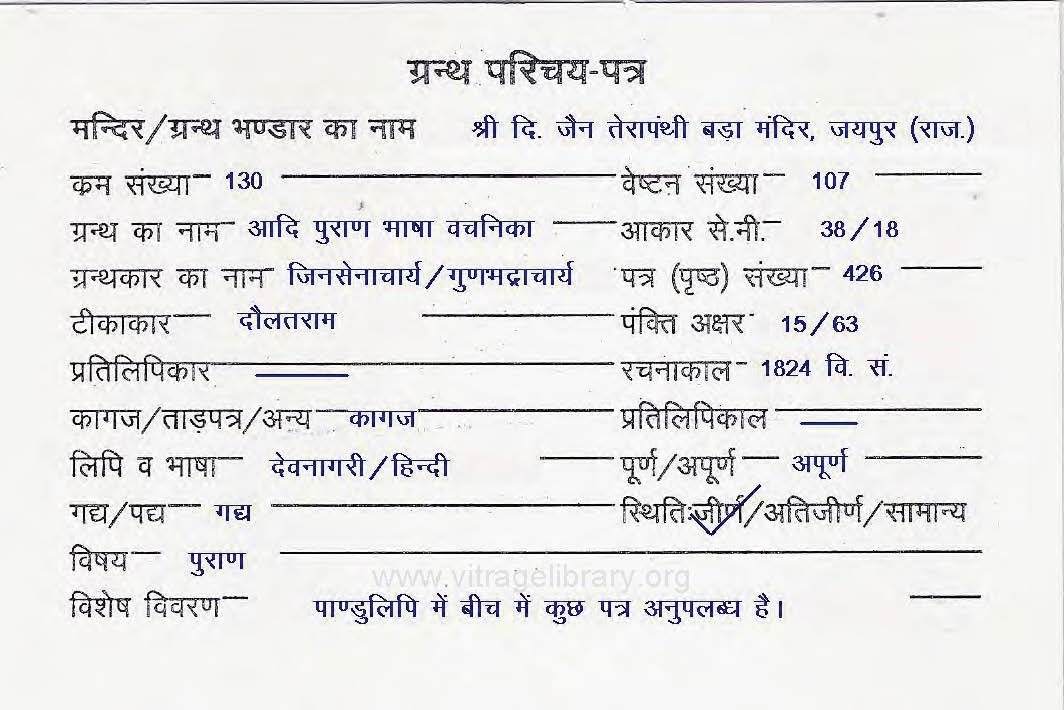 ग्रन्थ परिचय-पत्र
मन्दिर/ग्रन्थ भण्डार का नाम श्री दि. जैन तेरापंथी बड़ा मंदिर, जयपुर (राज.)
क्रम संख्या- 130 वेष्टन संख्या- 107
ग्रन्थ का नाम- आदि पुराण भाषा वचनिका आकार से.मी.- 38/18
ग्रन्थकार का नाम- जिनसेनाचार्य/गुणभद्राचार्य पत्र (पृष्ठ) संख्या- 426
टीकाकार- दौलतराम पंक्ति अक्षर- 15/63
प्रतिलिपिकार- रचनाकाल- 1824 वि. सं.
कागज/ताड़पत्र/अन्य- कागज प्रतिलिपिकाल-
लिपि व भाषा- देवनागरी/हिन्दी पूर्ण/अपूर्ण- अपूर्ण
गद्य/पद्य- गद्य स्थिति:जीर्ण/अतिजीर्ण/सामान्य
विषय- पुराण
www.vitragelibrary.org
विशेष विवरण- पाण्डुलिपि में बीच में कुछ पत्र अनुपलब्ध है।